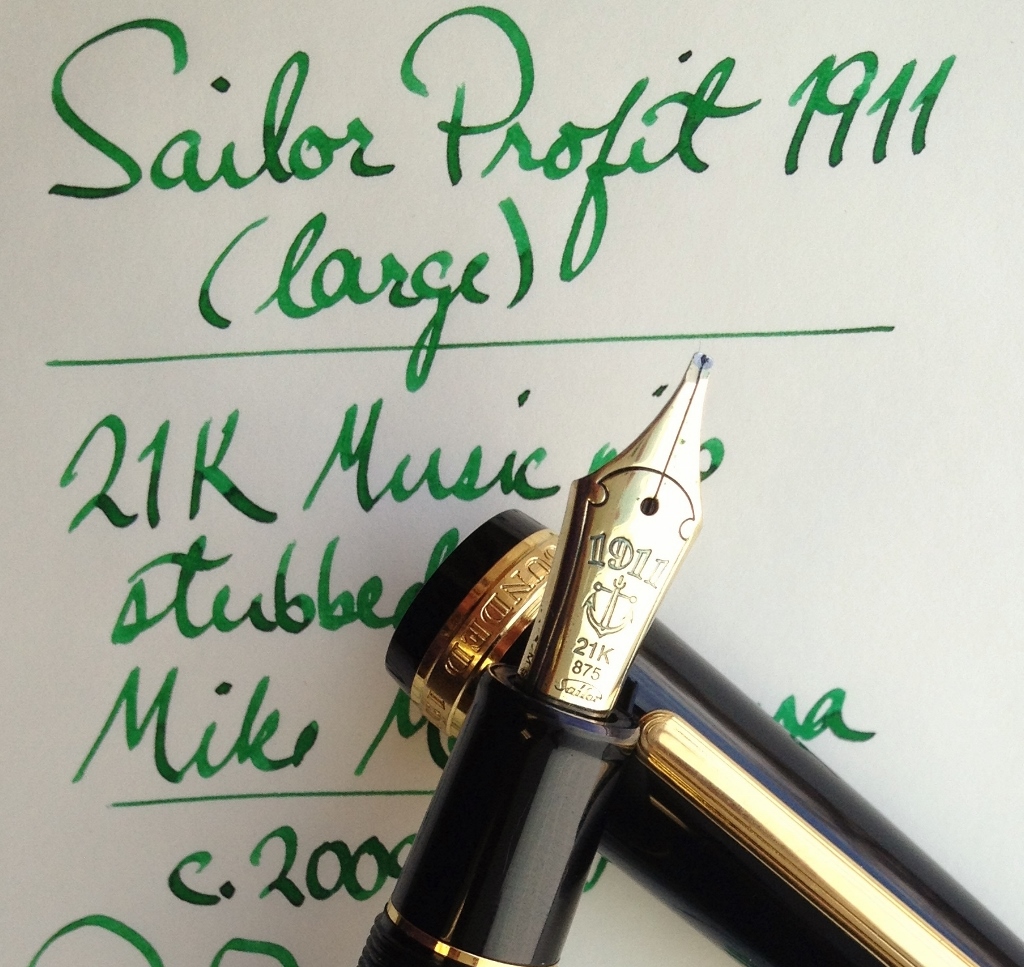 Sailor Profit 1911
(large)
21K Music nib
stubbed
Mike
c. 2009
1911
21K
875
Sailor